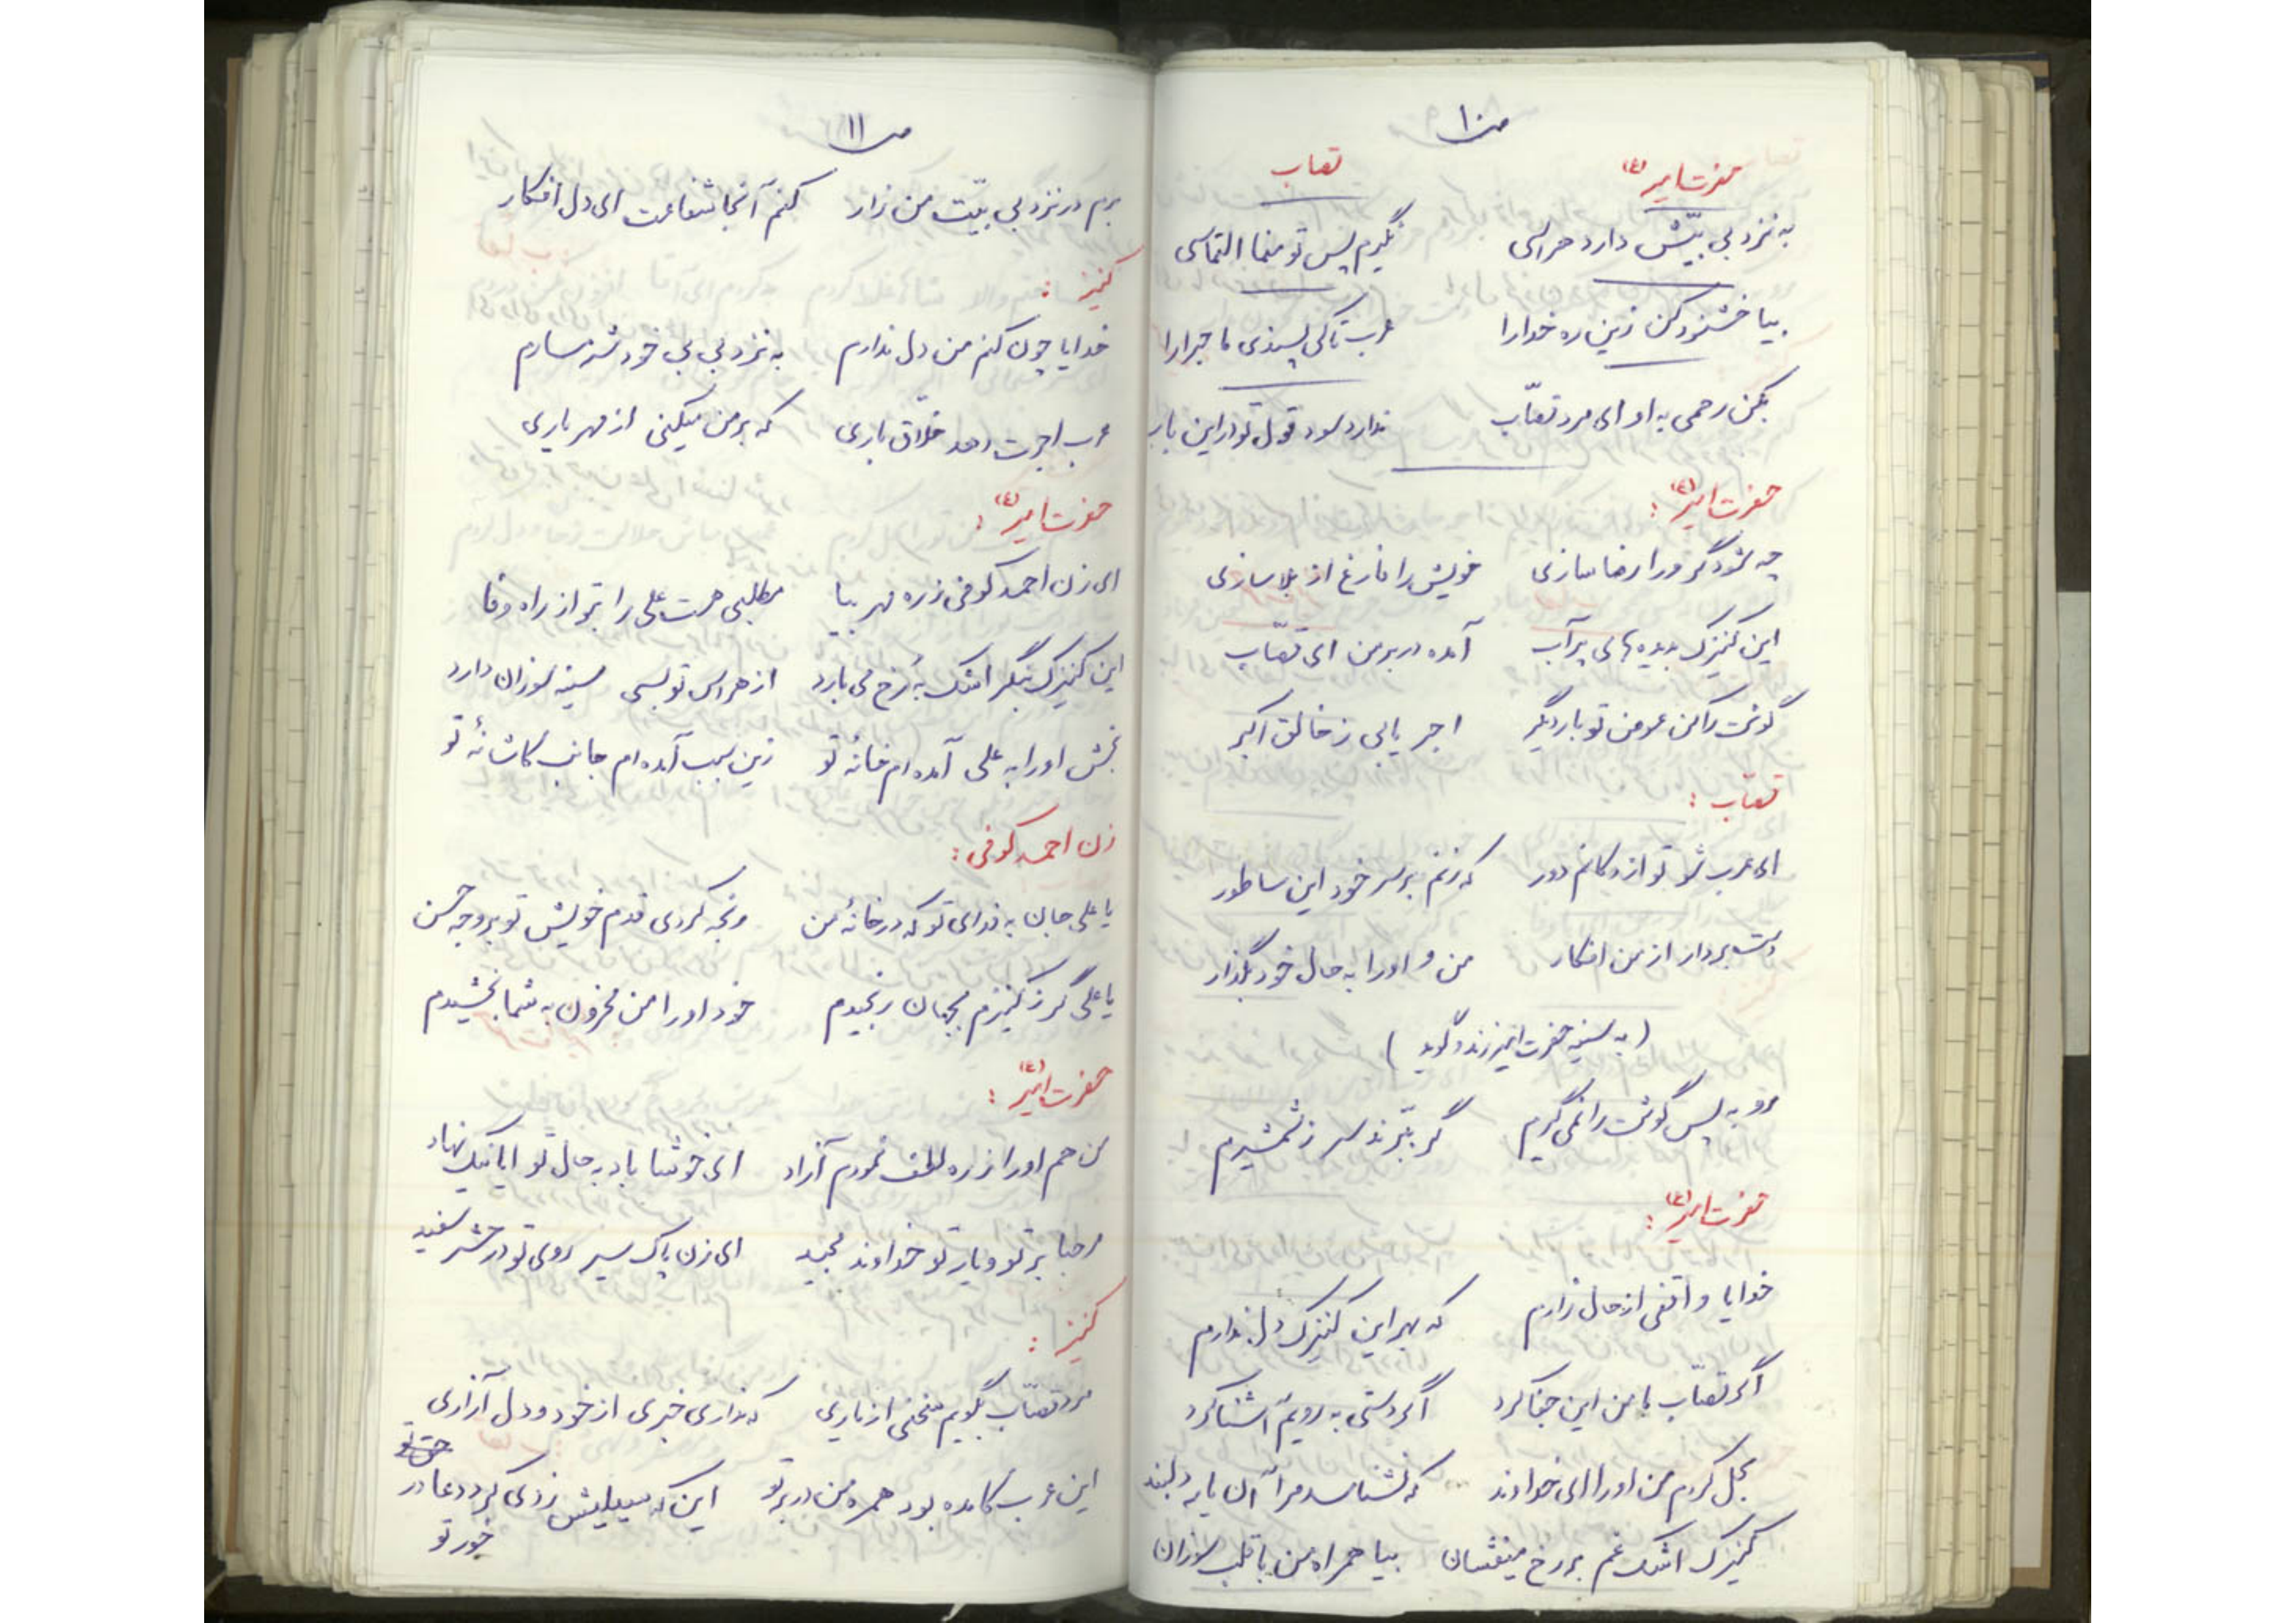 ص ۱۰
حضرت امیر (ع) قصاب
به نزد بی بیش دارد هراسی نگیرم پس تو منما التماسی
بیا خشنود کن زین ره خدا را عرب تا کی پسندی ماجرا را
بکن رحمی به او ای مرد قصّاب ندارد سود قول تو در این باب
حضرت امیر (ع) :
چه شود گر ورا رضا سازی خویش را فارغ از بلا سازی
این کنیزک بدیده های پر آب آمده در بر من ای قصّاب
گوشت را کن عوض تو بار دیگر اجر یابی ز خالق اکبر
قصّاب :
ای عرب شو تو از دکانم دور که زنم بر سر خود این ساطور
دست بردار از من افکار من و او را به حال خود بگذار
( به سینه حضرت امیر زند و گوید )
رو به پس گوشت را نمی گیرم گر ببّرند سر ز شمشیرم
حضرت امیر (ع) :
خدایا واقفی از حال زارم که بهر این کنیزک دل ندارم
اگر قصّاب با من این جفا کرد اگر دستی به رویم آشنا کرد
بحل کردم من او را ای خداوند که نشناسد مرا آن یار دلبند
کنیزک اشک غم بر رخ میفشان بیا همراه من با قلب سوزان
ص ۱۱
برم در نزد بی بیّت من زار کنم آنجا شفاعت ای دل افکار
کنیز :
خدایا چون کنم من دل ندارم به نزد بی بی خود شرمسارم
عرب اجرت دهد خلّاق باری که بر من میکنی از مهر یاری
حضرت امیر (ع) :
ای زن احمد کوفی ز ره مهر بیا مطلبی هست علی را بتو از راه وفا
این کنیزک بنگر اشک به رُخ می بارد از هراس تو بسی سینه سوزان دارد
بخش او را به علی آمده ام خانهٔ تو زین سبب آمده ام جانب کاشانهٔ تو
زن احمد کوفی :
یا علی جان به فدای تو که در خانهٔ من رنجه کردی قدم خویش تو بر وجه حسن
یا علی گر ز کنیزم بجهان رنجیدم خود او را من محزون به شما بخشیدم
حضرت امیر (ع) :
من هم او را ز ره لطف نمودم آزاد ای خوشا باد به حال تو ایا نیک نهاد
مرحبا بر تو و یار تو خداوند مجید ای زن پاک سیر روی تو در حشر سفید
کنیز :
مرد قصّاب بگویم سخنی از یاری که نداری خبری از خود و دل آزاری
این عرب کامده بود همره من در بر تو این که سیلیش زدی کرد دعا در
خور تو